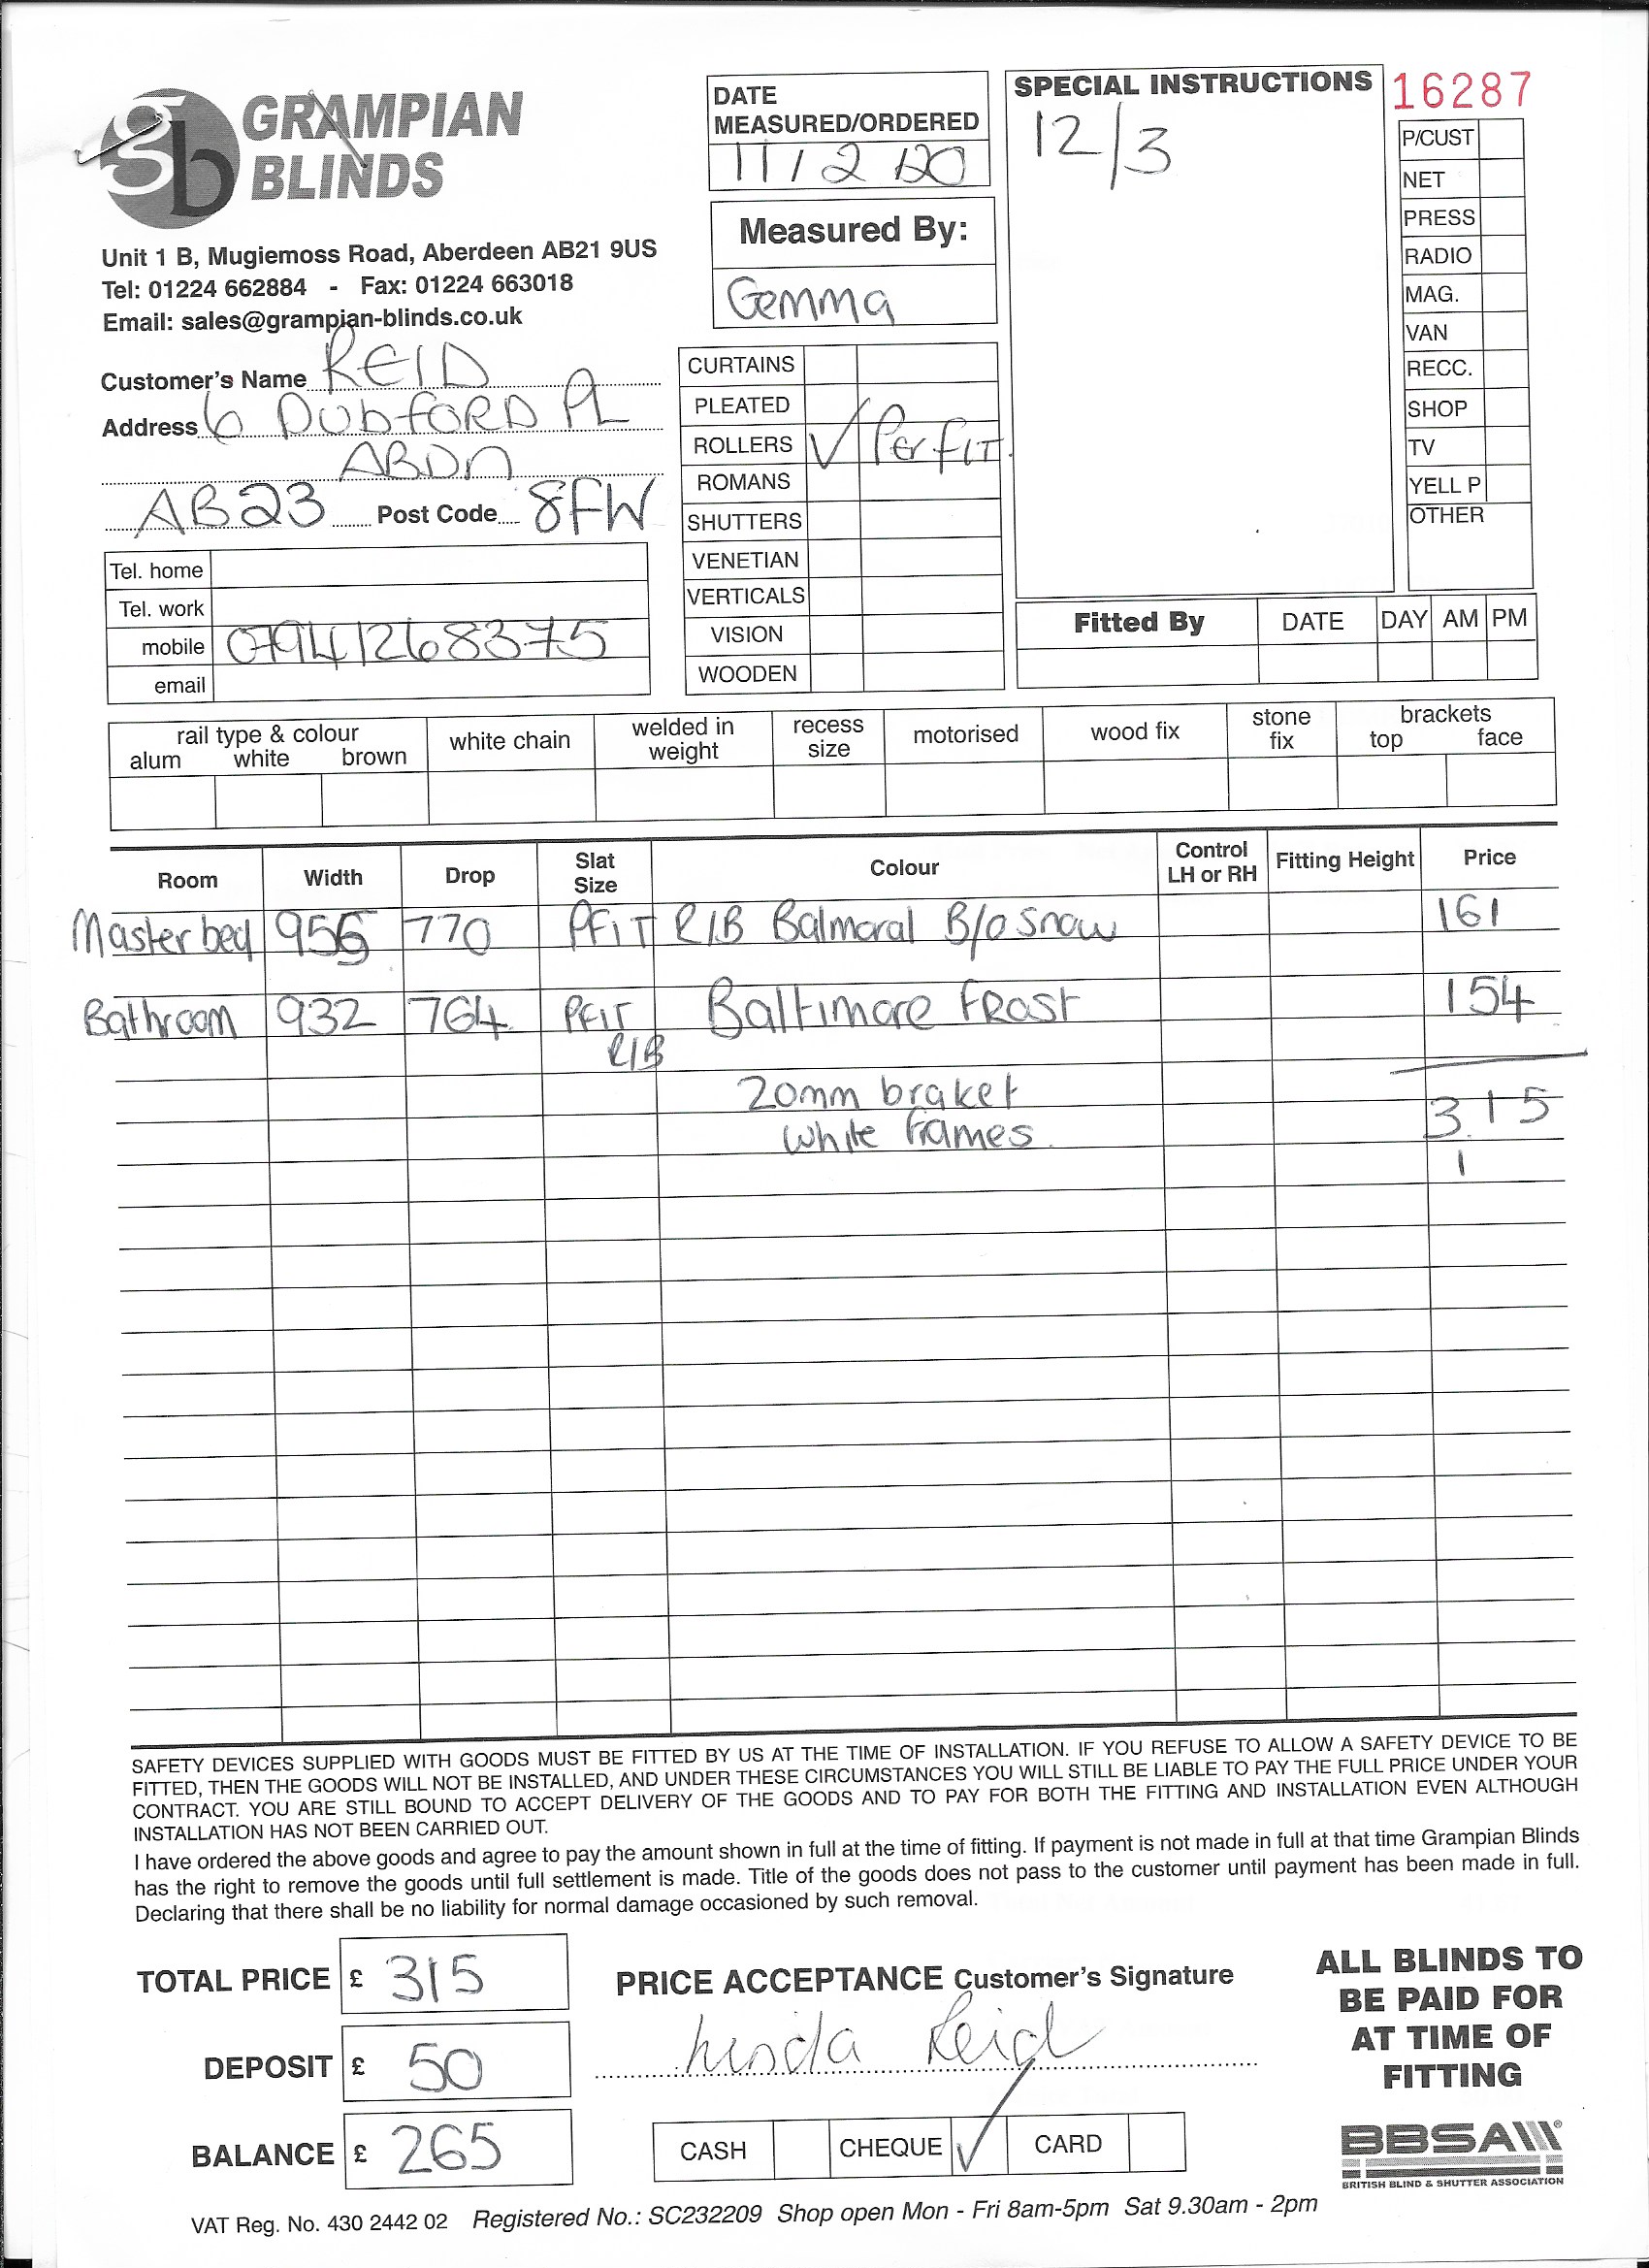 gb GRAMPIAN
BLINDS
Unit 1 B, Mugiemoss Road, Aberdeen AB21 9US
Tel: 01224 662884 - Fax: 01224 663018
Email: sales@grampian-blinds.co.uk
Customer's Name REID
Address 6 DUBFORD PL
ABDN
AB23 Post Code 8FW
Tel. home
Tel. work
mobile 07941268375
email
DATE
MEASURED/ORDERED
11/2/20
Measured By:
Gemma
CURTAINS
PLEATED
ROLLERS ✓ PerFIT.
ROMANS
SHUTTERS
VENETIAN
VERTICALS
VISION
WOODEN
SPECIAL INSTRUCTIONS
12/3
16287
P/CUST
NET
PRESS
RADIO
MAG.
VAN
RECC.
SHOP
TV
YELL P
OTHER
Fitted By DATE DAY AM PM
rail type & colour
alum white brown
white chain
welded in
weight
recess
size
motorised
wood fix
stone
fix
brackets
top face
Room Width Drop Slat Size Colour Control LH or RH Fitting Height Price
Master bed 956 770 PFIT R/B Balmoral B/o Snow 161
Bathroom 932 764 PFIT Baltimore FRost 154
R/B
20mm braket
White frames
315
1
SAFETY DEVICES SUPPLIED WITH GOODS MUST BE FITTED BY US AT THE TIME OF INSTALLATION. IF YOU REFUSE TO ALLOW A SAFETY DEVICE TO BE
FITTED, THEN THE GOODS WILL NOT BE INSTALLED, AND UNDER THESE CIRCUMSTANCES YOU WILL STILL BE LIABLE TO PAY THE FULL PRICE UNDER YOUR
CONTRACT. YOU ARE STILL BOUND TO ACCEPT DELIVERY OF THE GOODS AND TO PAY FOR BOTH THE FITTING AND INSTALLATION EVEN ALTHOUGH
INSTALLATION HAS NOT BEEN CARRIED OUT.
I have ordered the above goods and agree to pay the amount shown in full at the time of fitting. If payment is not made in full at that time Grampian Blinds
has the right to remove the goods until full settlement is made. Title of the goods does not pass to the customer until payment has been made in full.
Declaring that there shall be no liability for normal damage occasioned by such removal.
TOTAL PRICE £ 315
DEPOSIT £ 50
BALANCE £ 265
PRICE ACCEPTANCE Customer's Signature
Linda Reid
CASH CHEQUE ✓ CARD
ALL BLINDS TO
BE PAID FOR
AT TIME OF
FITTING
BBSA
BRITISH BLIND & SHUTTER ASSOCIATION
VAT Reg. No. 430 2442 02 Registered No.: SC232209 Shop open Mon - Fri 8am-5pm Sat 9.30am - 2pm